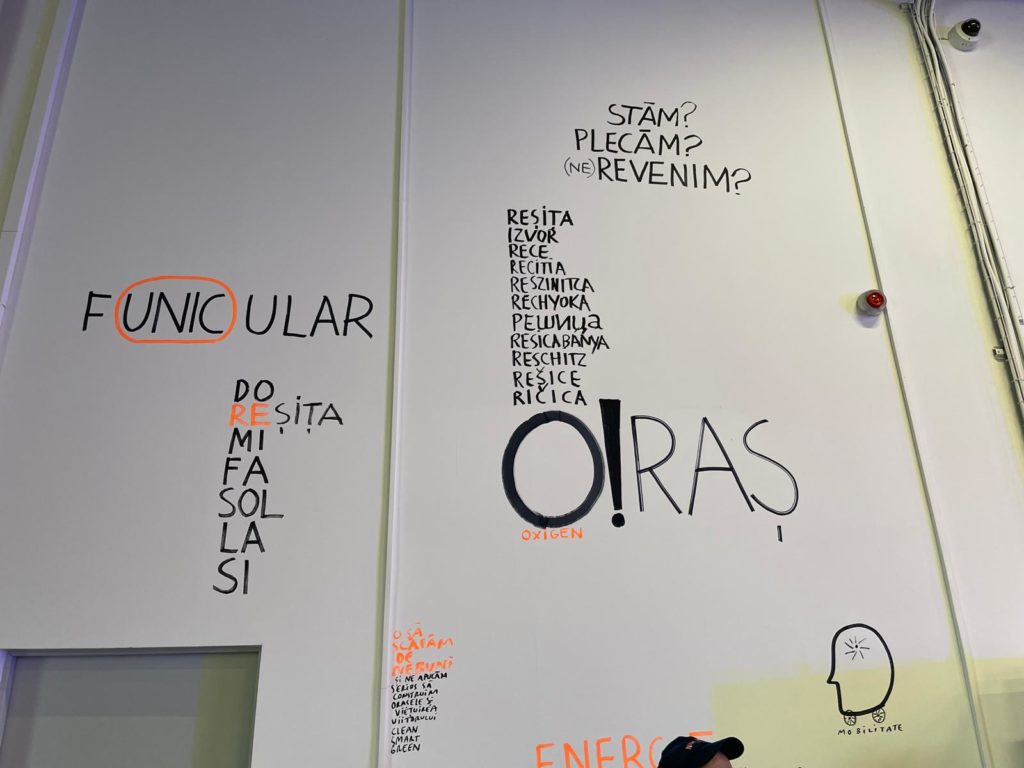 STĂM?
PLECĂM?
(NE)REVENIM?
REȘIȚA
IZVOR
RECE
RECITIA
RESZINITZA
RECHYOKA
РЕШИЦА
RESICABÁNYA
RESCHITZ
REŞICE
RIČICA
O!RAȘ
OXIGEN
FUNICULAR
DO
REȘIȚA
MI
FA
SOL
LA
SI
O SĂ
SCĂPĂM
DE
NEBUNI
ȘI NE APUCĂM
SERIOS SĂ
CONSTRUIM
ORAȘELE ȘI
VIEȚUIREA
VIITORULUI
CLEAN
SMART
GREEN
MOBILITATE